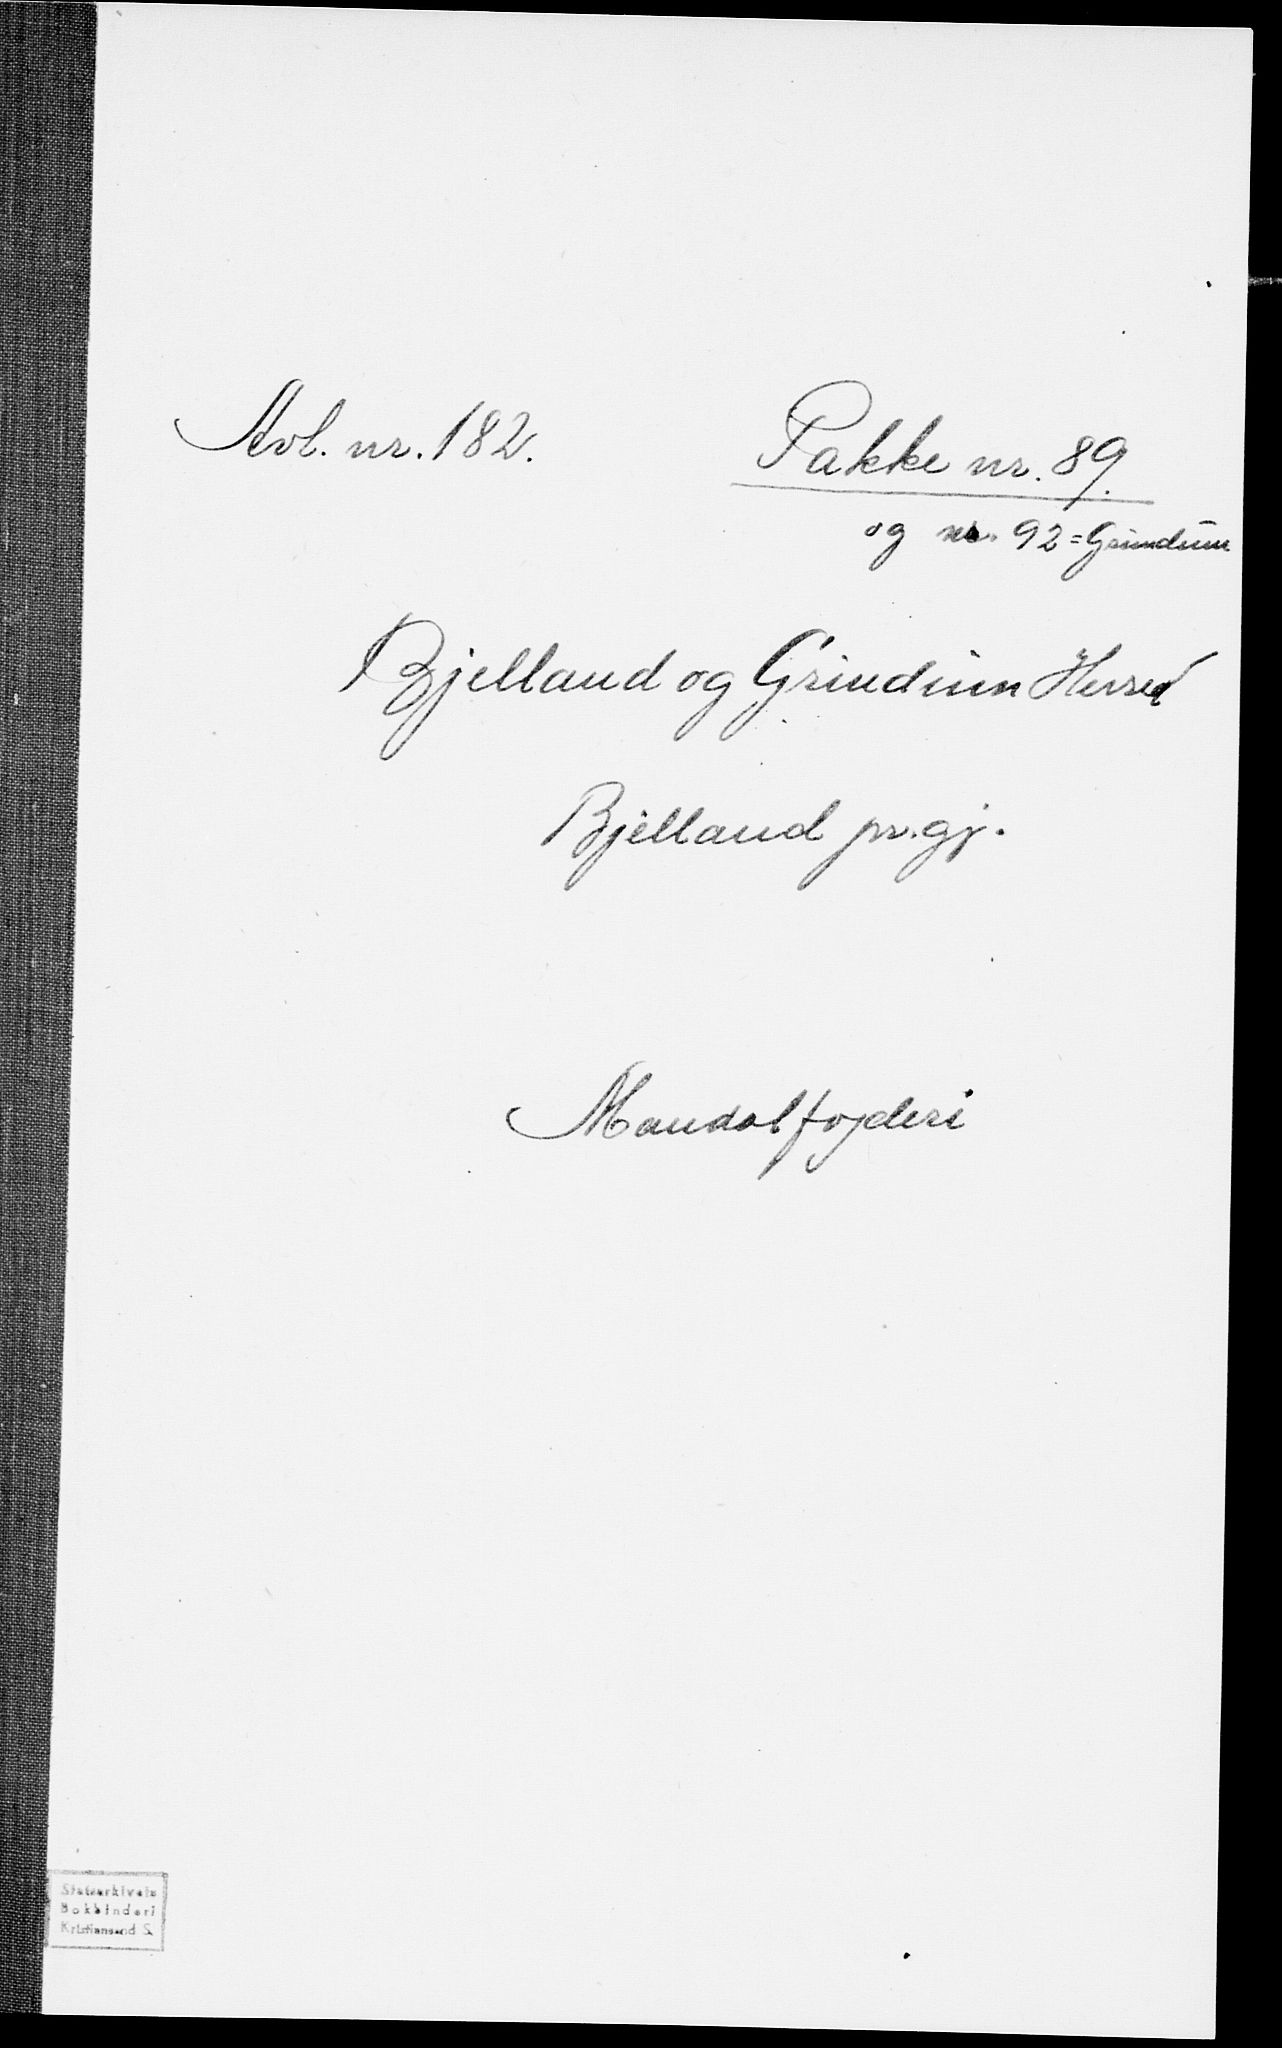 Avl. nr. 182.
Pakke nr. 89.
og nr. 92 = Grindum
Bjelland og Grindum Herred
Bjelland pr.gj.
Mandal fogderi
Statsarkivets
Bokbinderi
Kristiansand S.